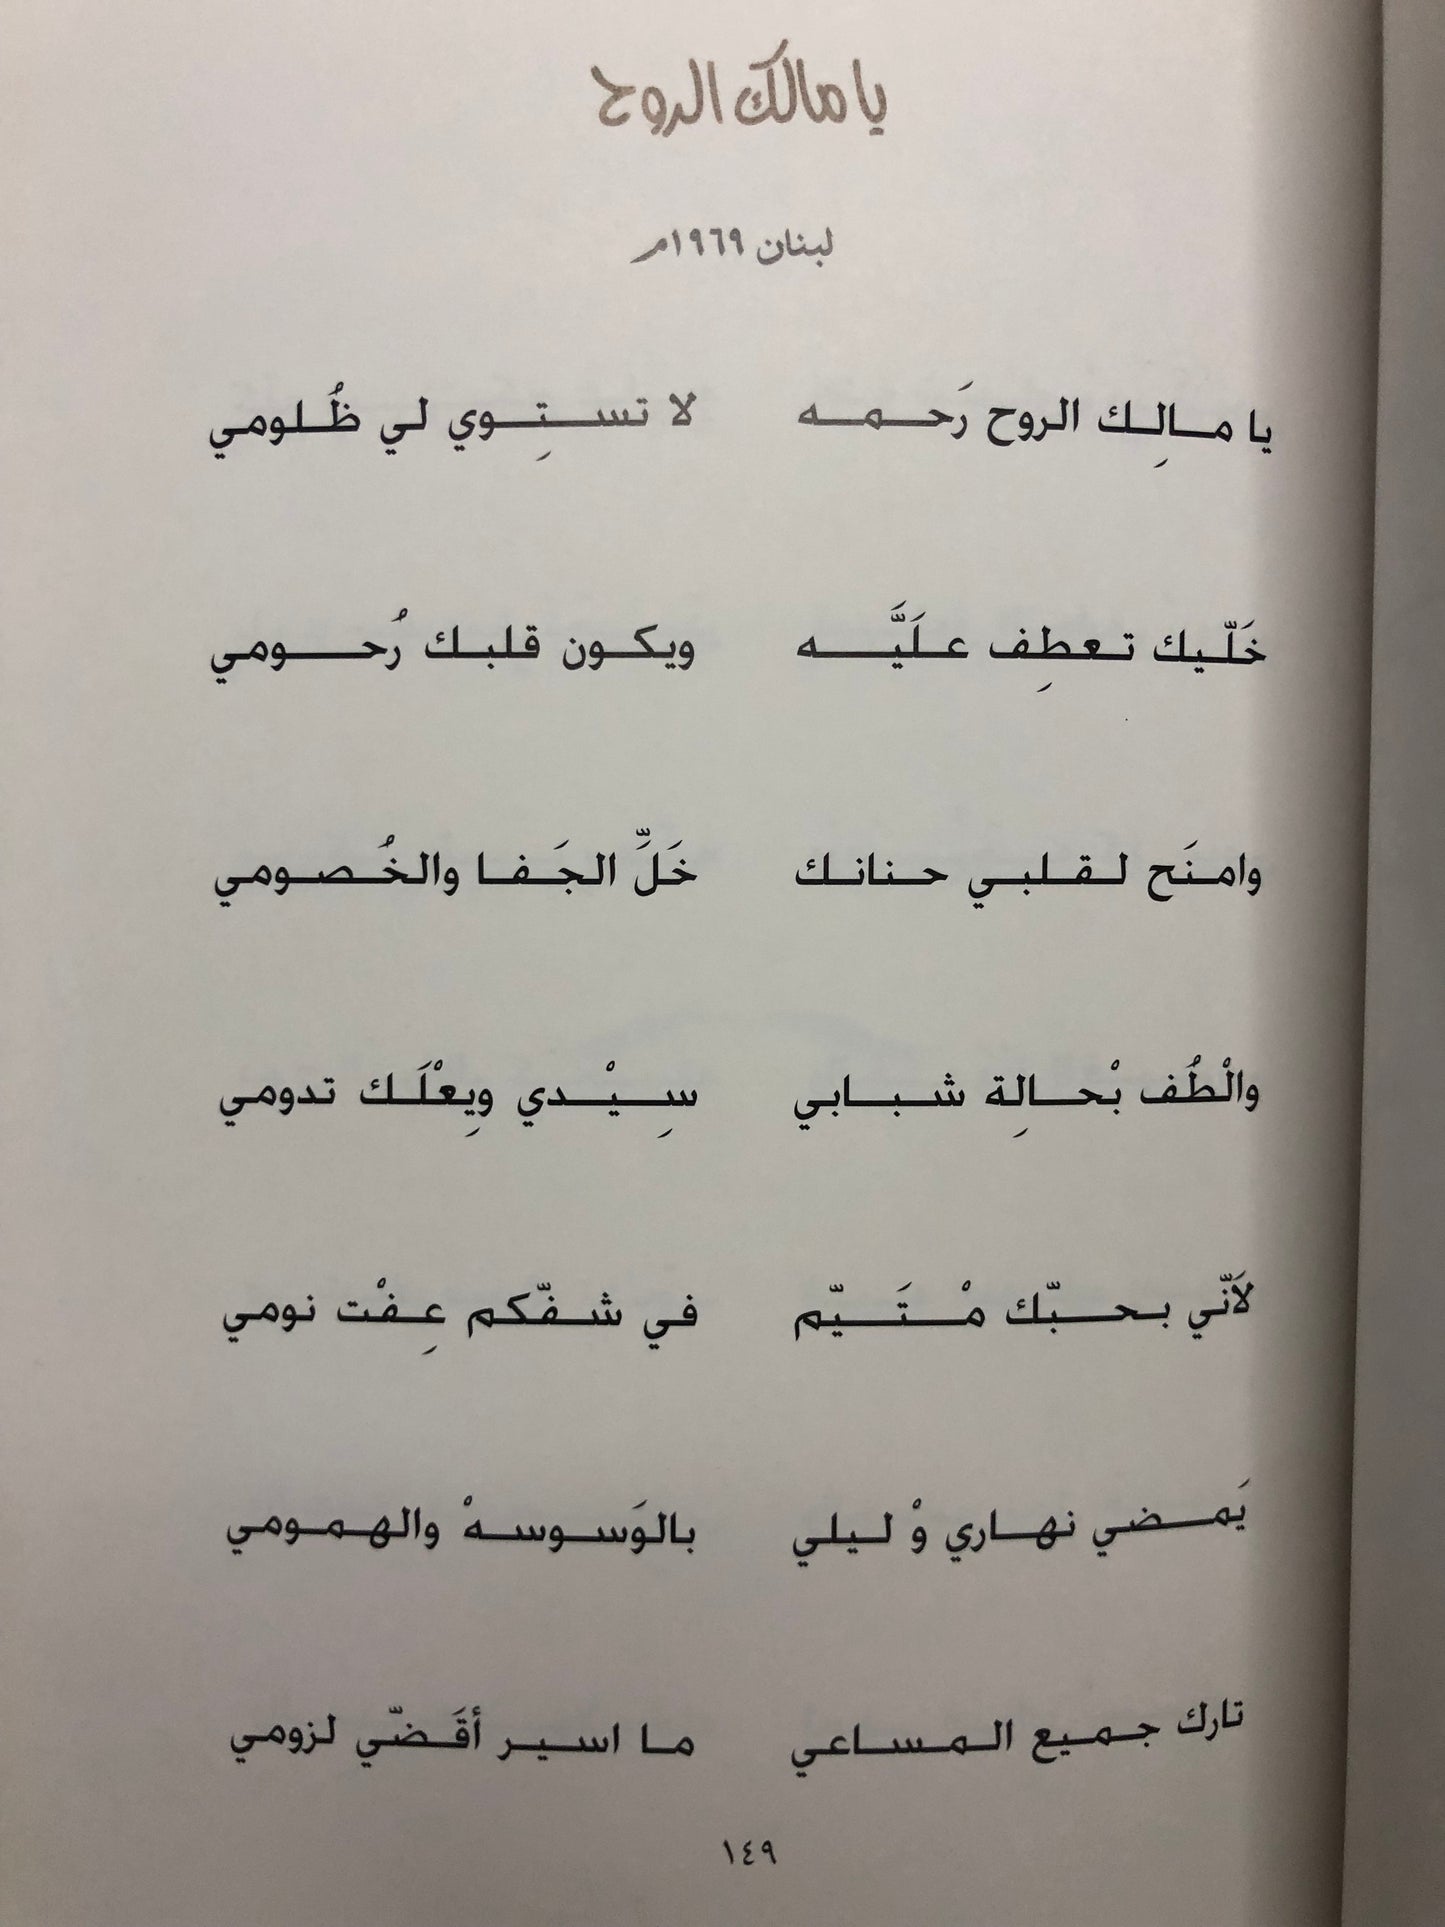 يا مالك الروح
لبنان ١٩٦٩م
يا مالِك الروح رَحمه لا تستِوي لي ظُلومي
خَلّيك تعطِف علَيَّه ويكون قلبك رُحومي
وامنَح لقلبي حنانك خَلِّ الجَفا والخُصومي
والْطُف بْحالِة شبابي سِيْدي ويِعْلَك تدومي
لَأنّي بحبّك مْتَيّم في شفّكم عِفْت نومي
يَمضي نهاري وْ ليلي بالوَسوسهْ والهمومي
تارك جميع المساعي ما اسير أقَضّي لزومي
١٤٩